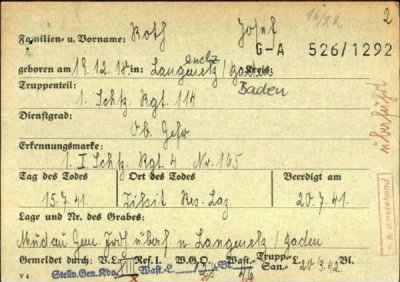 2
Familien- u. Vorname: Roth Josef
G-A 526/1292
geboren am 19.12.18 in Langenelz / Kreis:
Baden
Truppenteil:
1. Schtz. Rgt. 114
Dienstgrad:
Ob. Gefr.
Erkennungsmarke:
1. I Schtz. Rgt. 4 Nr. 165
Tag des Todes Ort des Todes Beerdigt am
15.7.41. Res. Laz. 20.7.41.
Lage und Nr. des Grabes:
Mudau Gem. Frdh. überf. n. Langenelz / Baden
Gemeldet durch: V.L. Ref. I. W.G.O. Wast.- Trupp.- Bl.
Stellv. Gen. Kdo. XIII Wast.-L. Bl. San.-L. 20 3.42
V 4
überführt